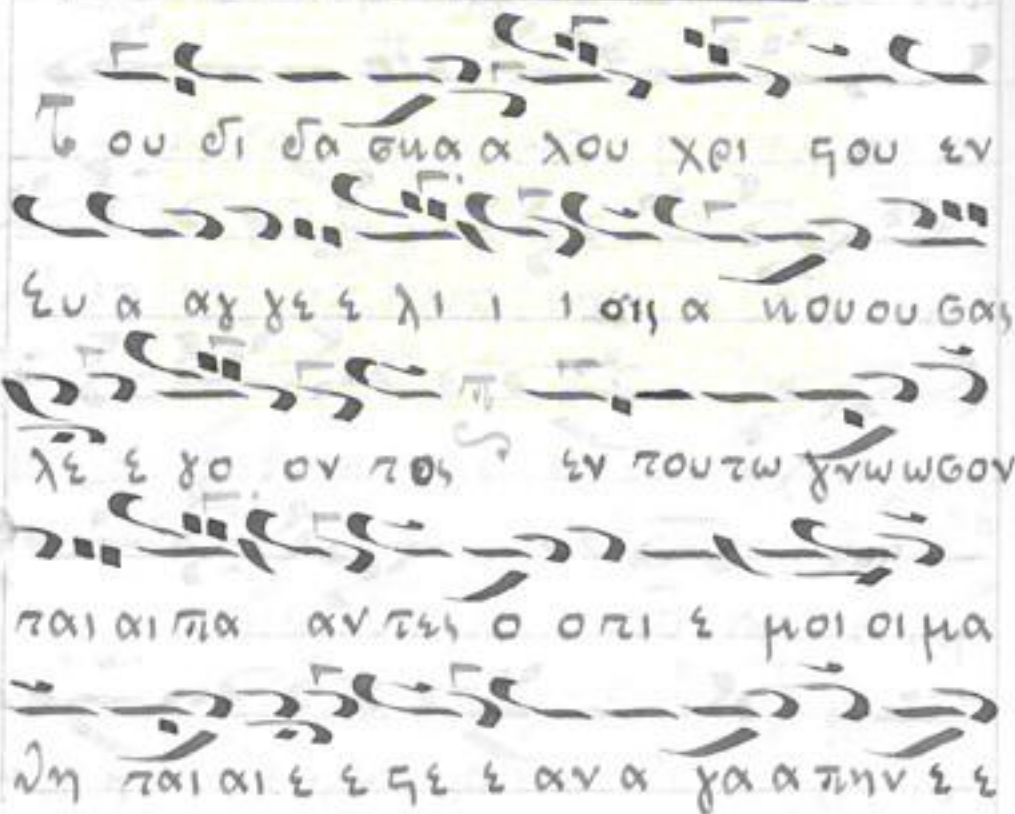 Του δι δα σκα α λου χρι ϛου εν
ευ α αγ γε ε λι ι ι οις α κου ου σας
λε ε γο ον τος εν του τω γνω ω σον
ται αι πα αν τες ο ο τι ε μοι οι μα
θη ται αι ε ε ϛε ε αν α γα α πην ε ε